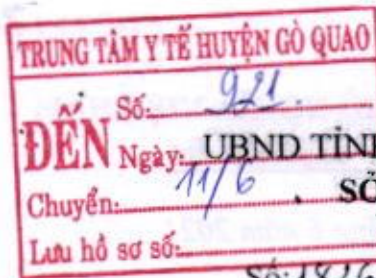 TRUNG TÂM Y TẾ HUYỆN GÒ QUAO
ĐẾN
Số: 921.
Ngày: 11/6
UBND TỈN
Chuyển:
SỞ
Lưu hồ sơ số:
Số: 1816